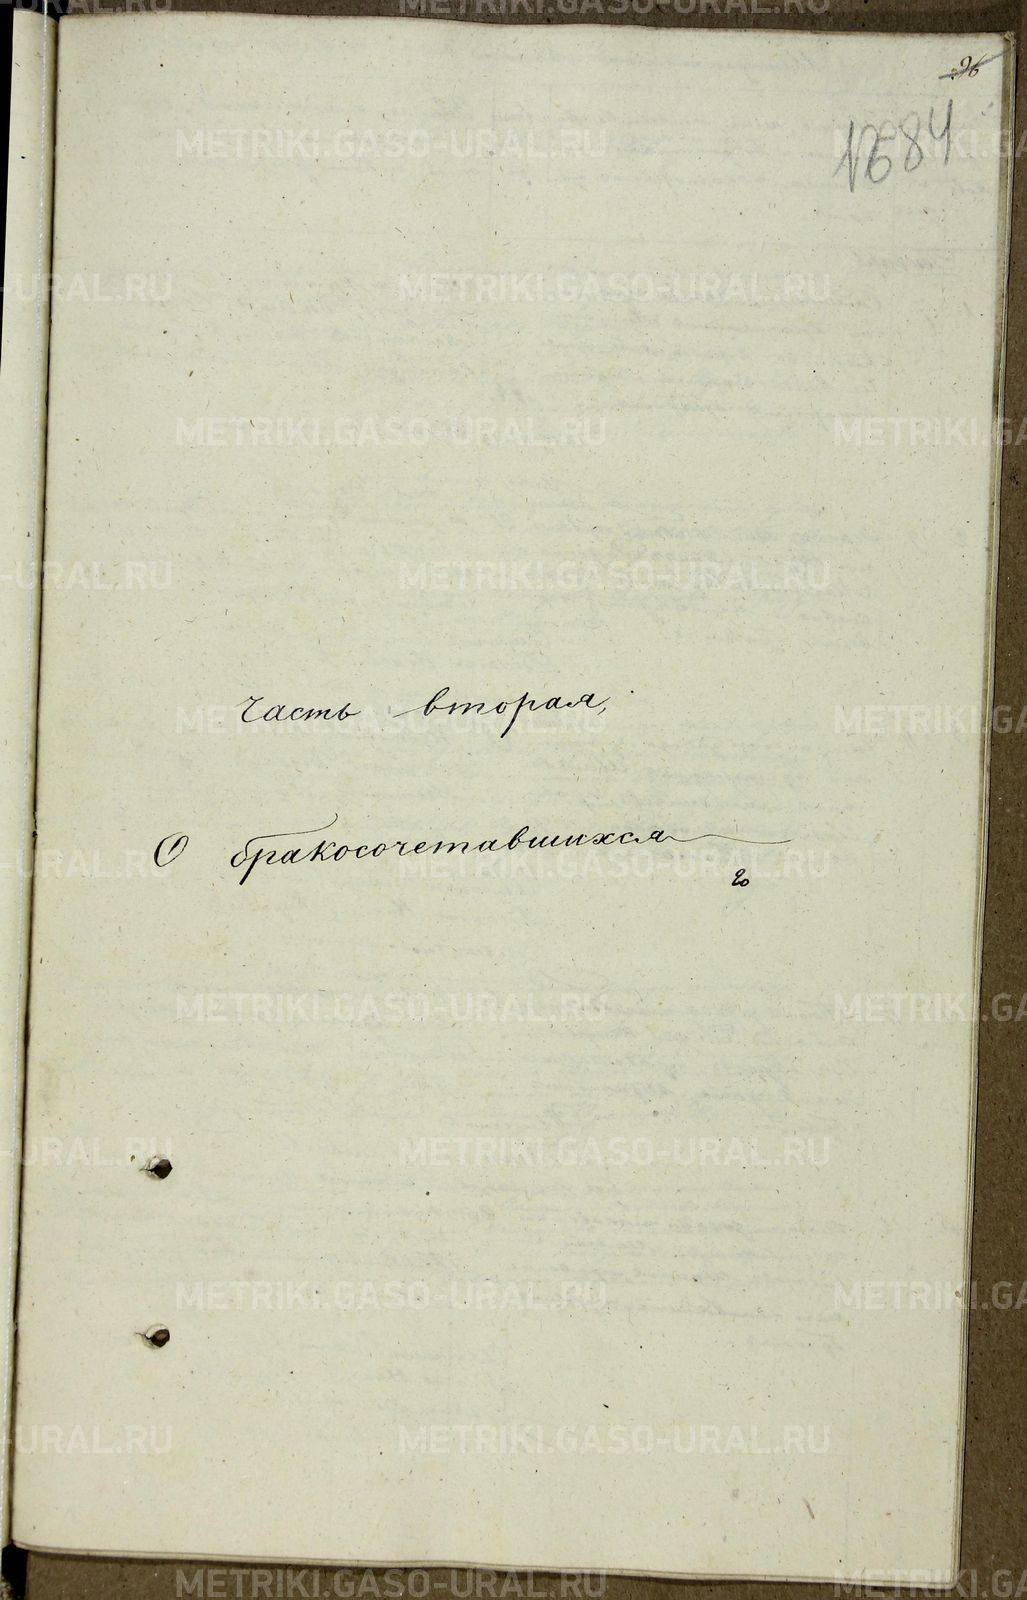 96
часть вторая,
О бракосочетавшихся
METRIKI.GASO-URAL.RU